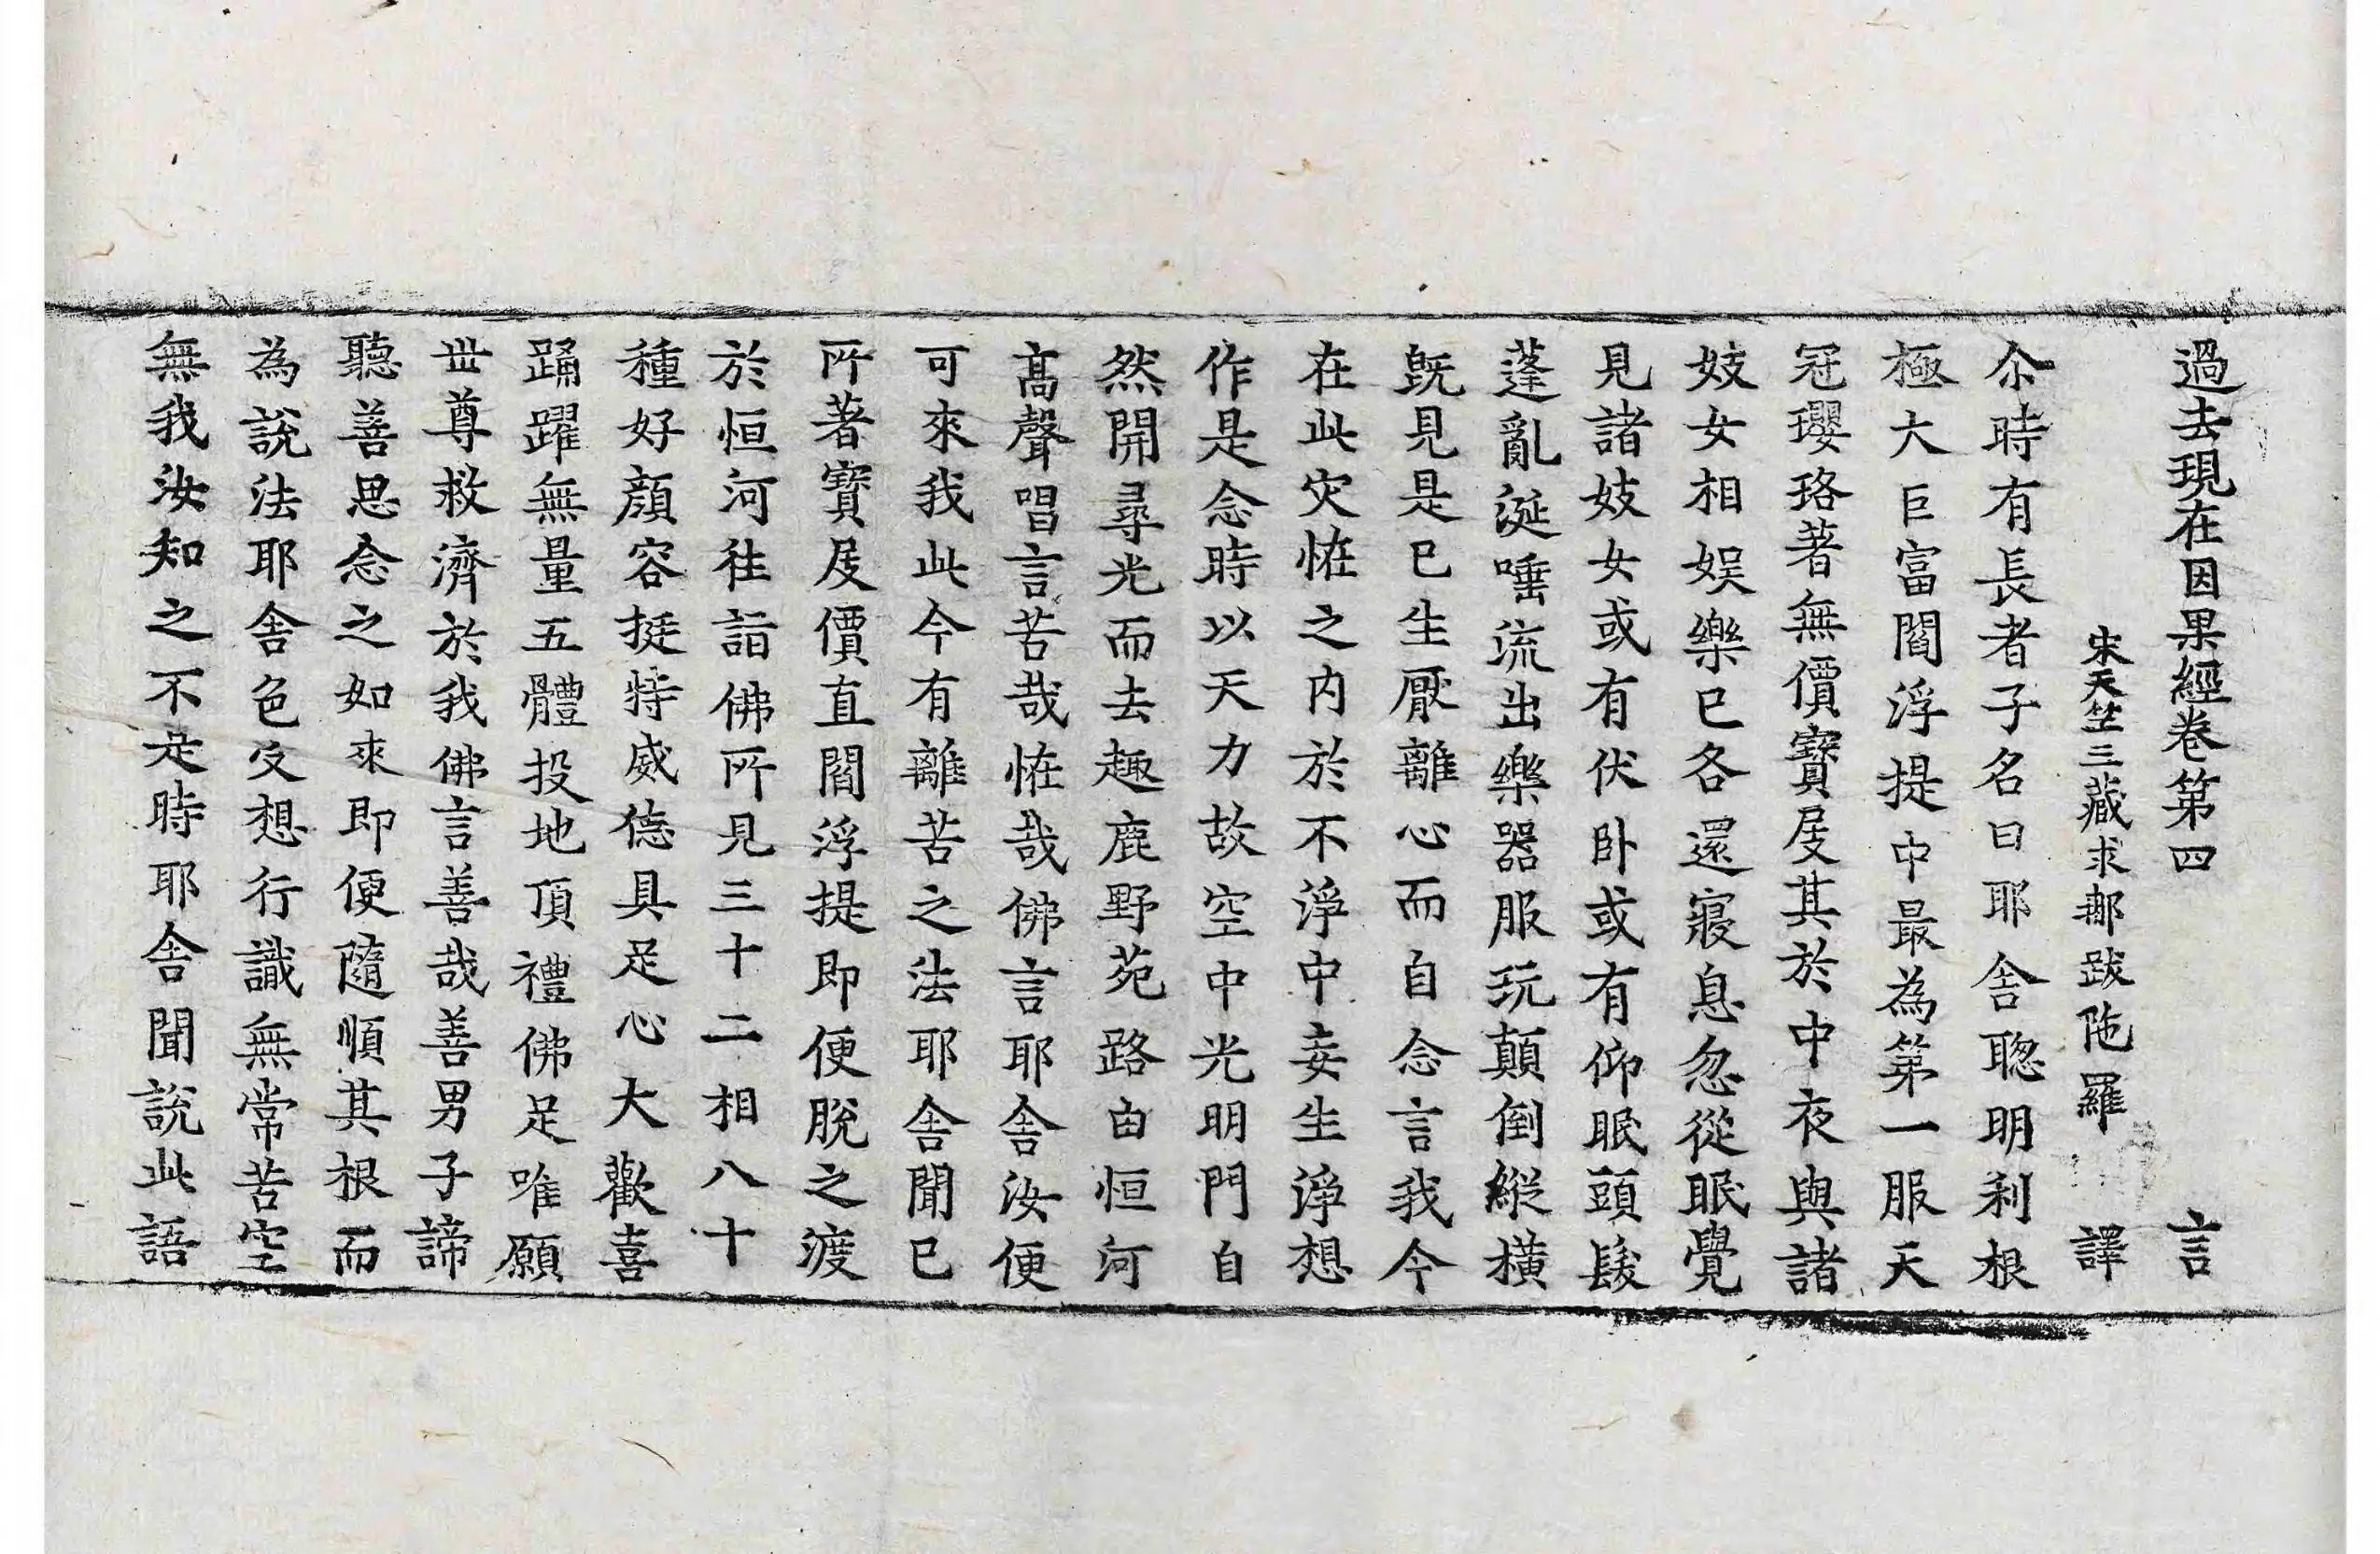 過去現在因果經卷第四　言
宋天竺三藏求那跋陁羅　譯
尒時有長者子名曰耶舍聦明利根
極大巨富閻浮提中最為第一服天
冠瓔珞著無價寶屐其於中夜與諸
妓女相娱樂已各還寢息忽從眠覺
見諸妓女或有伏卧或有仰眠頭髮
蓬亂涎唾流出樂器服玩顛倒縱橫
旣見是已生厭離心而自念言我今
在此灾恠之内於不淨中妄生淨想
作是念時以天力故空中光明門自
然開尋光而去趣鹿野苑路由恒河
髙聲唱言苦哉恠哉佛言耶舍汝便
可來我此今有離苦之法耶舍聞已
所著寶屐價直閻浮提即便脫之渡
於恒河往詣佛所見三十二相八十
種好顔容挺特威德具足心大歡喜
踊躍無量五體投地頂禮佛足唯願
世尊救濟於我佛言善哉善男子諦
聽善思念之如來即便隨順其根而
為說法耶舍色受想行識無常苦空
無我汝知之不是時耶舍聞說此語